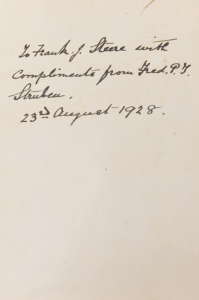 To Frank J. Steere with
compliments from Fred. P. T.
Struben.
23rd August 1928.